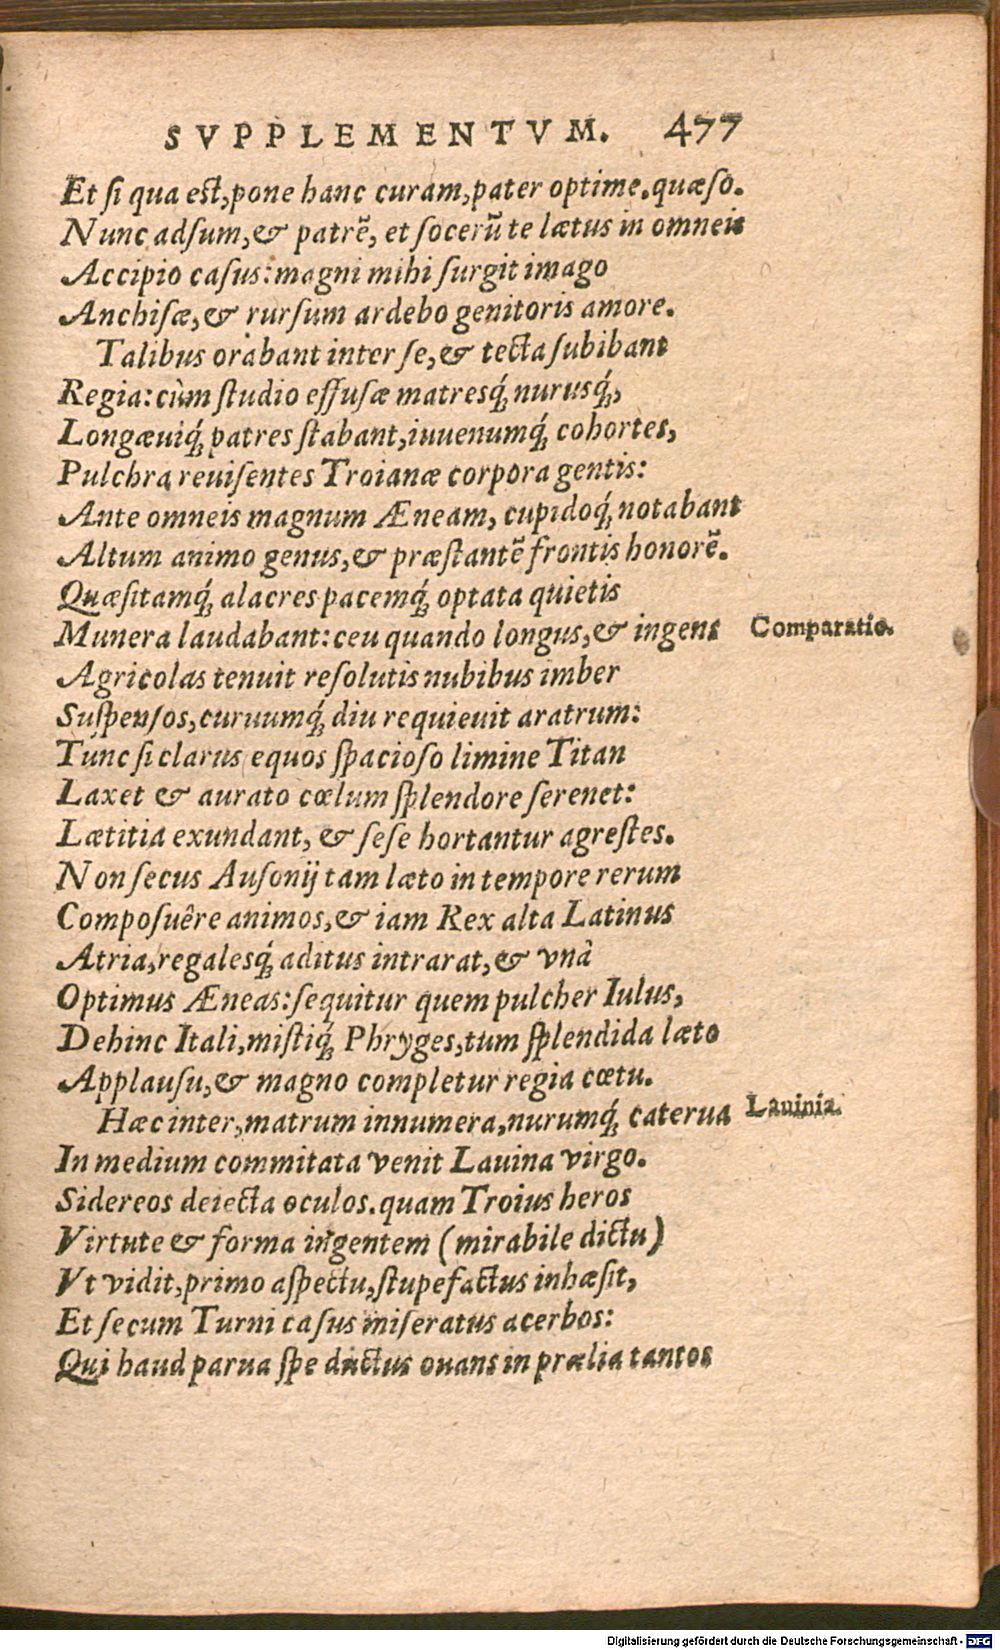 SVPPLEMENTVM. 477
Et ſi qua eſt, pone hanc curam, pater optime. quæſo.
Nunc adſum, & patrē, et ſocerū te lætus in omneis
Accipio caſus: magni mihi ſurgit imago
Anchiſæ, & rurſum ardebo genitoris amore.
Talibus orabant inter ſe, & tecta ſubibant
Regia: cùm ſtudio effuſæ matresq́; nurusq́;,
Longæuiq́; patres ſtabant, iuuenumq́; cohortes,
Pulchra reuiſentes Troianæ corpora gentis:
Ante omneis magnum Æneam, cupidoq́; notabant
Altum animo genus, & præſtantē frontis honorē.
Quæſitamq́; alacres pacemq́; optata quietis
Munera laudabant: ceu quando longus, & ingens
Comparatio.
Agricolas tenuit reſolutis nubibus imber
Suſpenſos, curuumq́; diu requieuit aratrum:
Tunc ſi clarus equos ſpacioſo limine Titan
Laxet & aurato cœlum ſplendore ſerenet:
Lætitia exundant, & ſeſe hortantur agreſtes.
Non ſecus Auſonij tam læto in tempore rerum
Compoſuêre animos, & iam Rex alta Latinus
Atria, regalesq́; aditus intrarat, & vnà
Optimus Æneas: ſequitur quem pulcher Iulus,
Dehinc Itali, miſtiq́; Phryges, tum ſplendida læto
Applauſu, & magno completur regia cœtu.
Hæc inter, matrum innumera, nurumq́; caterua
Lauinia.
In medium commitata venit Lauina virgo.
Sidereos deiecta oculos. quam Troius heros
Virtute & forma ingentem (mirabile dictu)
Vt vidit, primo aſpectu, ſtupefactus inhæſit,
Et ſecum Turni caſus miſeratus acerbos:
Qui haud parua ſpe ductus ouans in prælia tantos
Digitalisierung gefördert durch die Deutsche Forschungsgemeinschaft - DFG